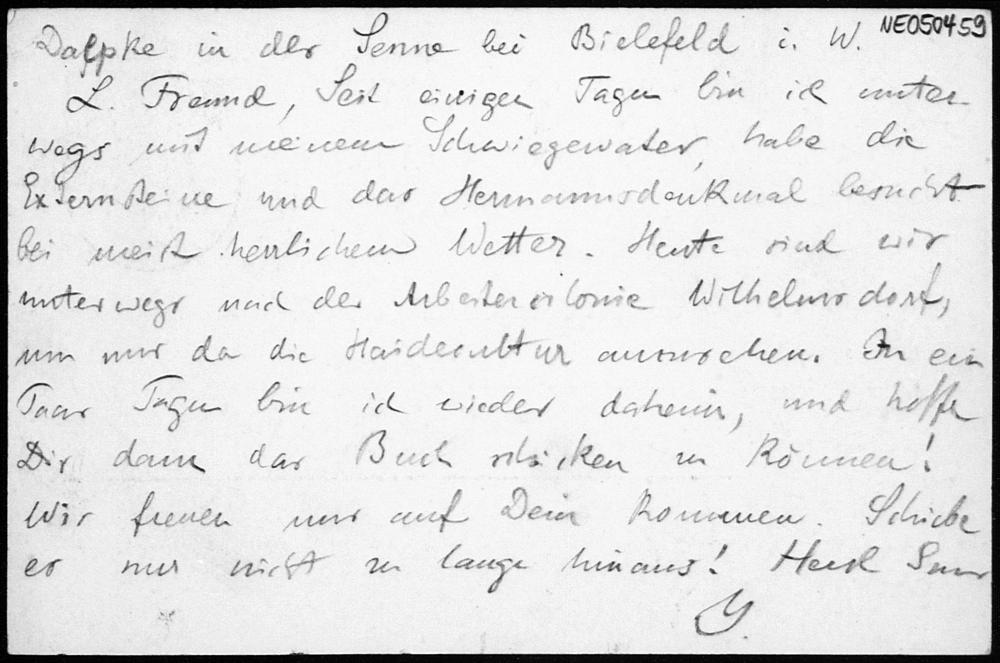 Dalpke in der Senne bei Bielefeld i. W. NE050459
L. Freund, Seit einigen Tagen bin ich unter
wegs mit meinem Schwiegervater, habe die
Externsteine und das Hermannsdenkmal besucht
bei meist herrlichem Wetter. Heute sind wir
unterwegs nach der Arbeitercolonie Wilhelmsdorf,
um uns da die Haidecultur anzusehen. In ein
Paar Tagen bin ich wieder daheim, und hoffe
Dir dann das Buch schicken zu können!
Wir freuen uns auf Dein Kommen. Schiebe
es nur nicht zu lange hinaus! Herzl